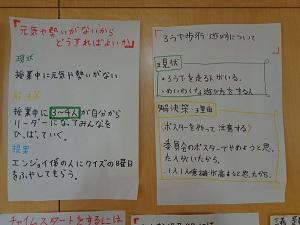 元気や勢いがないから
どうすればよいか
現状
授業中に元気や勢いがない
解決策
授業中に3〜4人が自分から
リーダーになってみんなを
ひっぱっていく。
提案
エンジョイ係の人にクイズの曜日
をふやしてもらう。
ろう下歩行、遊びについて
現状
・ろう下を走る人がいる。
・めいわくな遊び方をする人
解決策・理由
(ポスターを作って注意する)
委員会のポスターでやめようと思っ
た人がいたから。
・1人1人意識が高まると思ったから。
チャイムスタートをするには